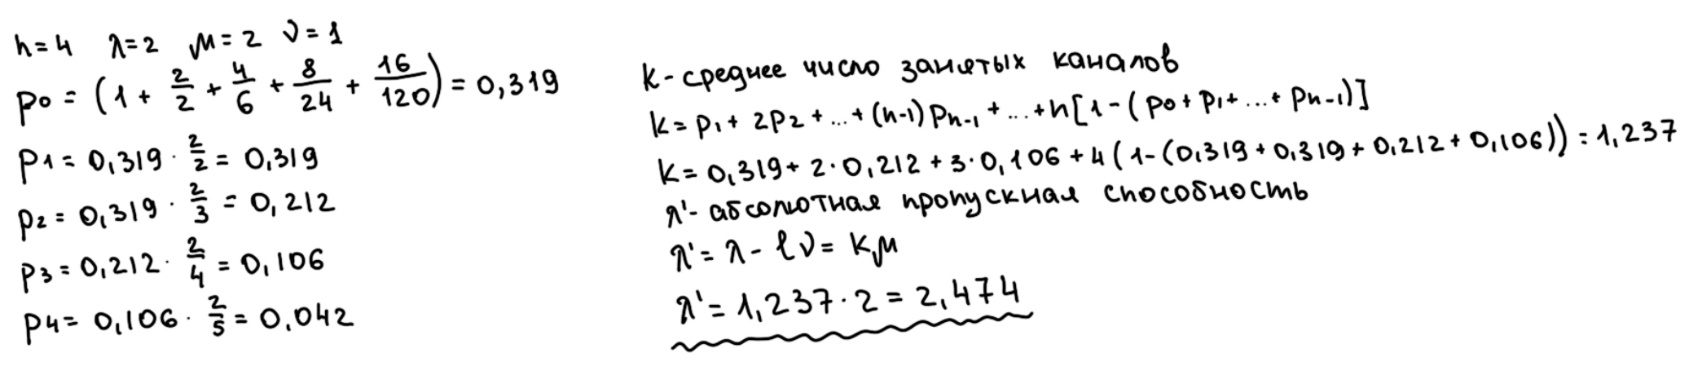 n=4 λ=2 μ=2 ν=1
p0 = (1 + 2/2 + 4/6 + 8/24 + 16/120) = 0,319
p1 = 0,319 · 2/2 = 0,319
p2 = 0,319 · 2/3 = 0,212
p3 = 0,212 · 2/4 = 0,106
p4 = 0,106 · 2/5 = 0,042
k - среднее число занятых каналов
k = p1 + 2p2 + ... + (n-1)pn-1 + ... + n[1 - (p0 + p1 + ... + pn-1)]
k = 0,319 + 2·0,212 + 3·0,106 + 4(1-(0,319 + 0,319 + 0,212 + 0,106)) = 1,237
λ' - абсолютная пропускная способность
λ' = λ - lν = kμ
λ' = 1,237 · 2 = 2,474